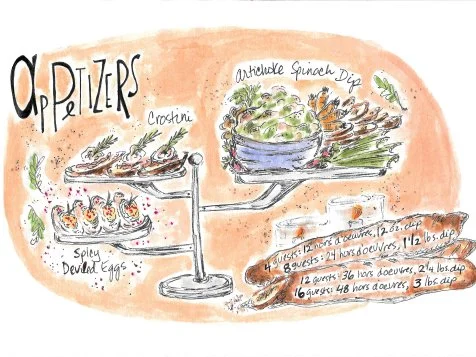 appetizers
Artichoke Spinach Dip
Crostini
Spicy
Deviled Eggs
4 guests: 12 hors d'oeuvres, 12 oz. dip
8 guests: 24 hors d'oeuvres, 1 1/2 lbs. dip
12 guests: 36 hors d'oeuvres, 2 1/4 lbs. dip
16 guests: 48 hors d'oeuvres, 3 lbs. dip